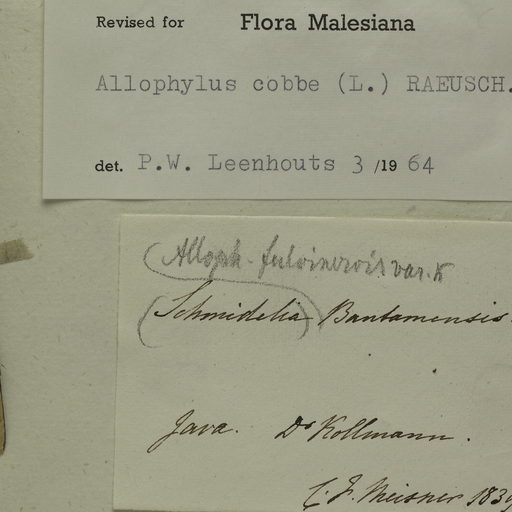 Revised for Flora Malesiana
Allophylus cobbe (L.) RAEUSCH.
det. P.W. Leenhouts 3 /19 64
(Alloph. fulvinervis var. κ
(Schmidelia) Bantamensis.
Java. Dr Kollmann.
C. F. Meisner 1839